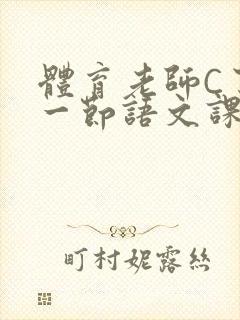 體育老師C了
一節語文課
町村妮露絲